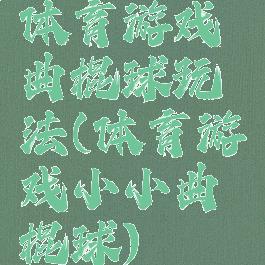 体育游戏
曲棍球玩
法(体育游
戏小小曲
棍球)